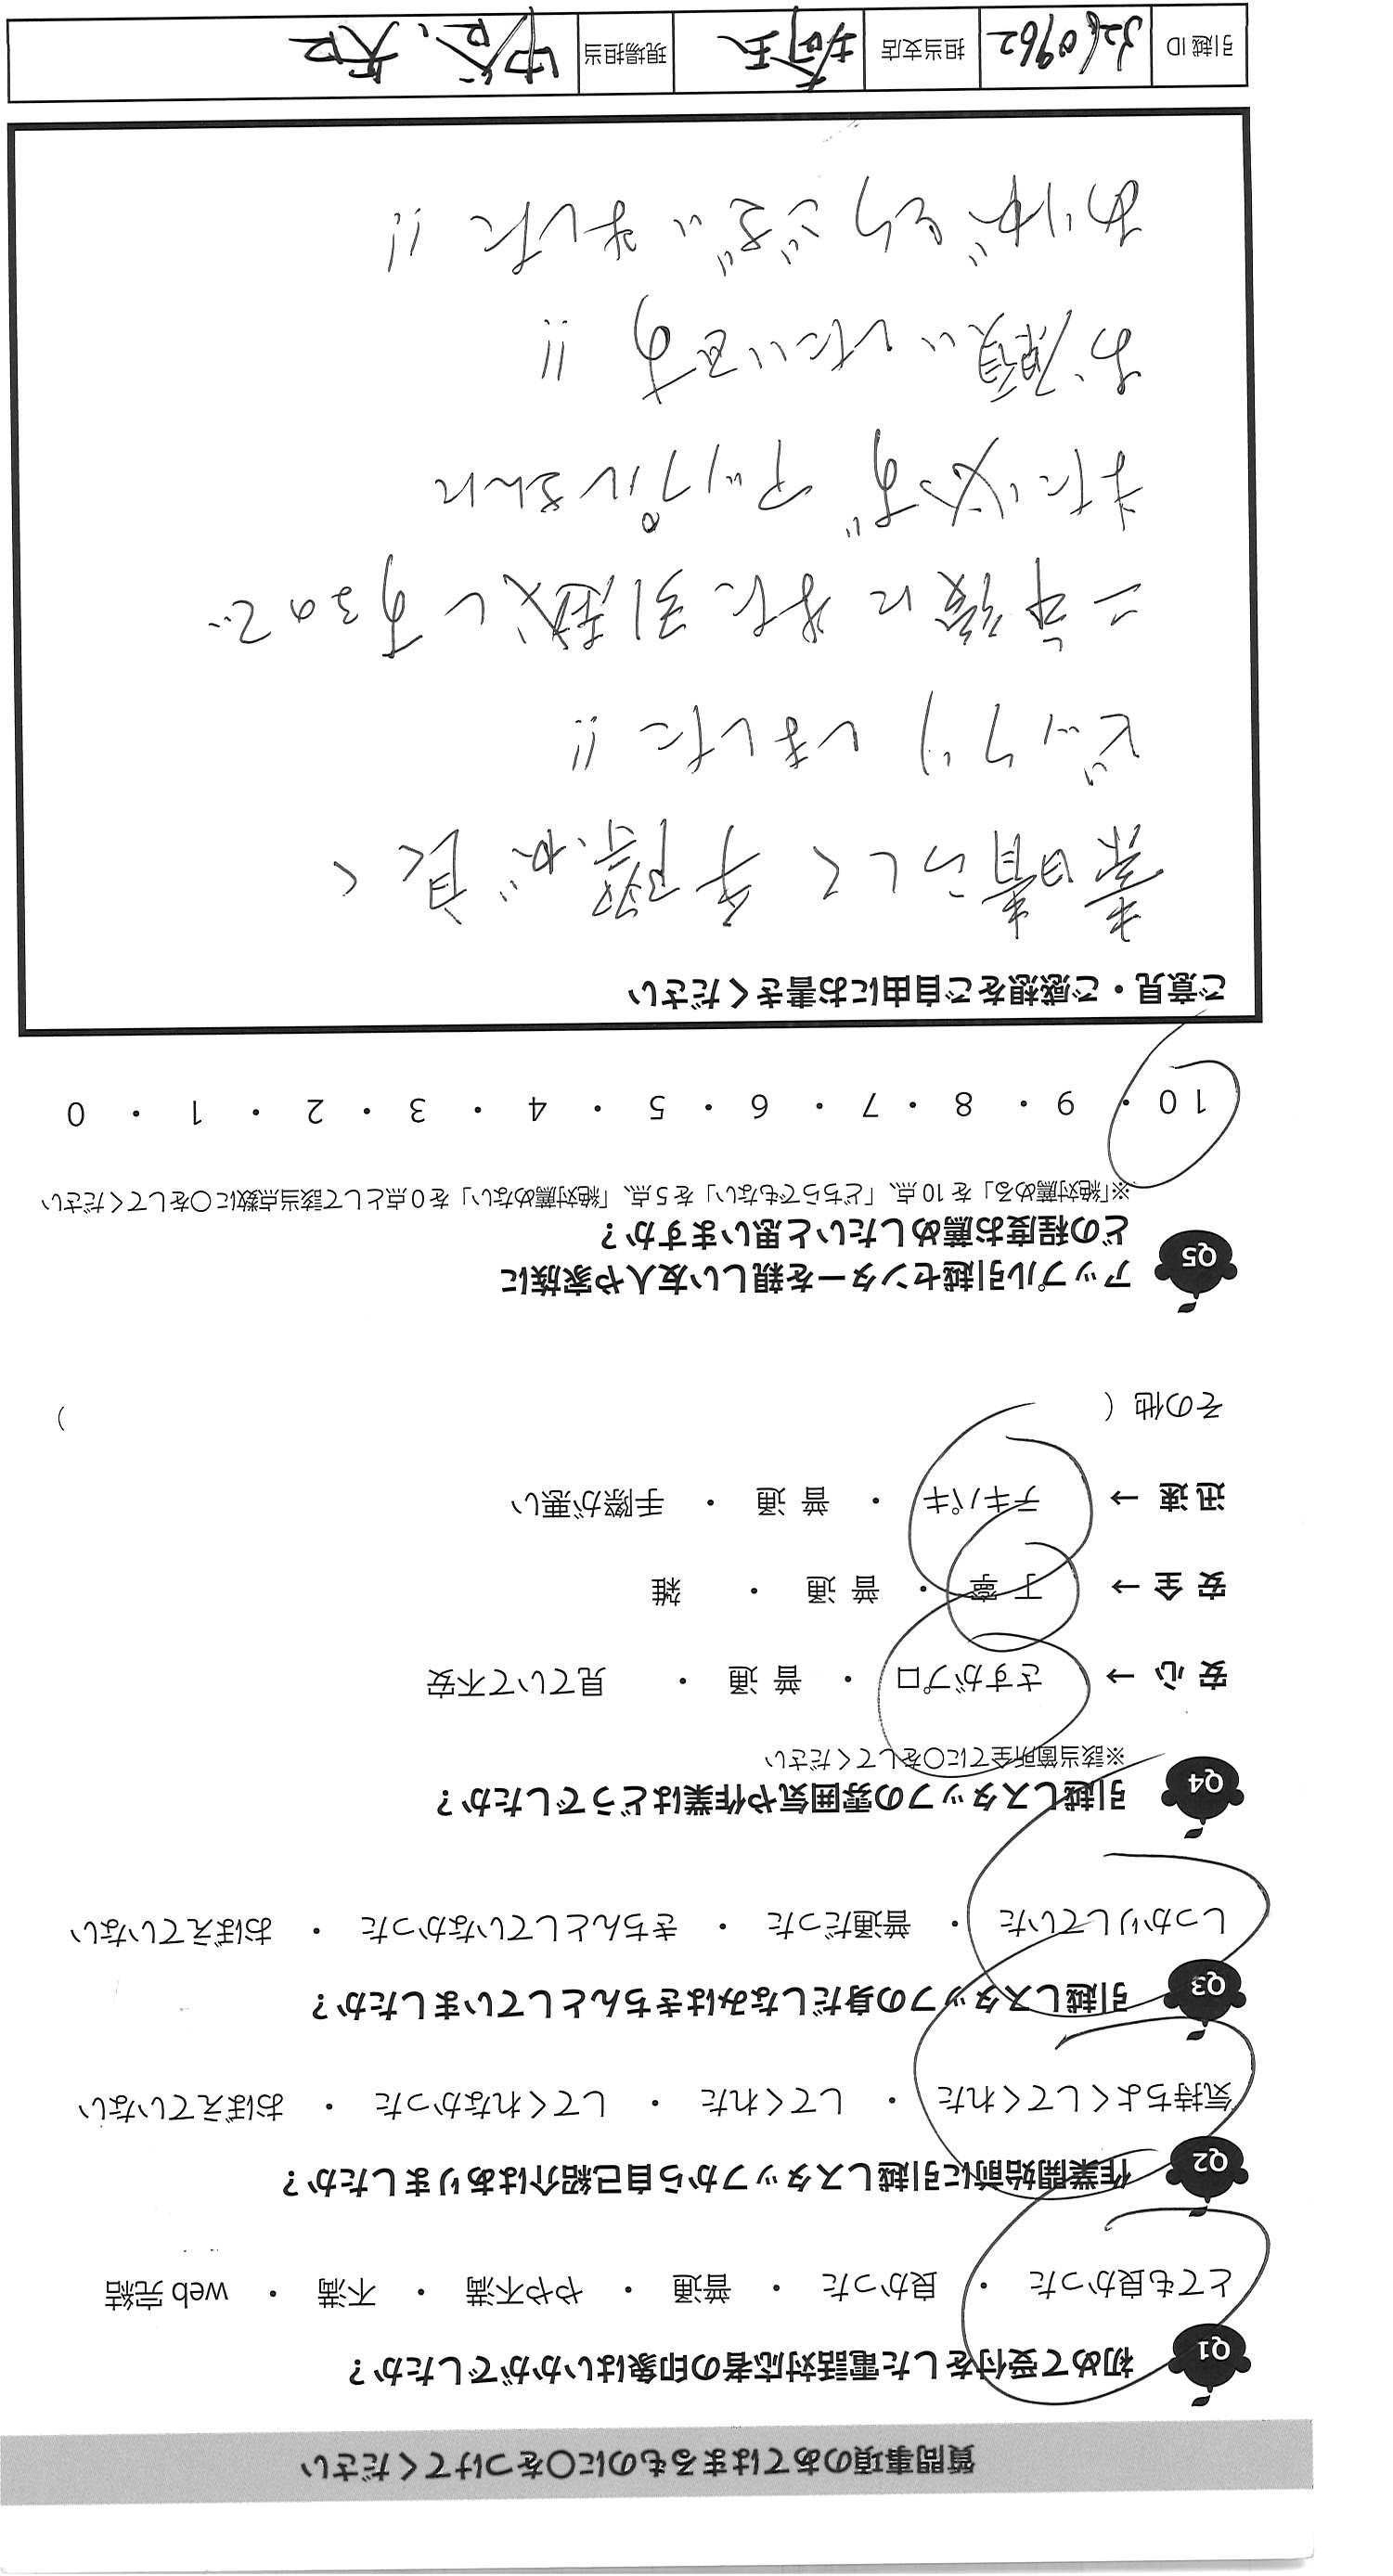 質問事項のあてはまるものに○をつけてください
Q1 初めて受付をした電話対応者の印象はいかがでしたか？
とても良かった ・ 良かった ・ 普通 ・ やや不満 ・ 不満 ・ web 完結
Q2 作業開始前に引越しスタッフから自己紹介はありましたか？
気持ちよくしてくれた ・ してくれた ・ してくれなかった ・ おぼえていない
Q3 引越しスタッフの身だしなみはきちんとしていましたか？
しっかりしていた ・ 普通だった ・ きちんとしていなかった ・ おぼえていない
Q4 引越しスタッフの雰囲気や作業はどうでしたか？
※該当箇所全てに○をしてください
安心 → さすがプロ ・ 普通 ・ 見ていて不安
安全 → 丁寧 ・ 普通 ・ 雑
迅速 → テキパキ ・ 普通 ・ 手際が悪い
その他（ ）
Q5 アップル引越センターを親しい友人や家族に
どの程度お薦めしたいと思いますか？
※「絶対薦める」を 10 点、「どちらでもない」を 5 点、「絶対薦めない」を 0 点として該当点数に○をしてください
10 ・ 9 ・ 8 ・ 7 ・ 6 ・ 5 ・ 4 ・ 3 ・ 2 ・ 1 ・ 0
ご意見・ご感想をご自由にお書きください
素晴らしく手際が良く
ビックリしました!!
二年後にまた引越しするので
また必ずアップルさんに
お願いしたいです!!
ありがとうございました!!
引越ID 担当支店 埼玉 現場担当